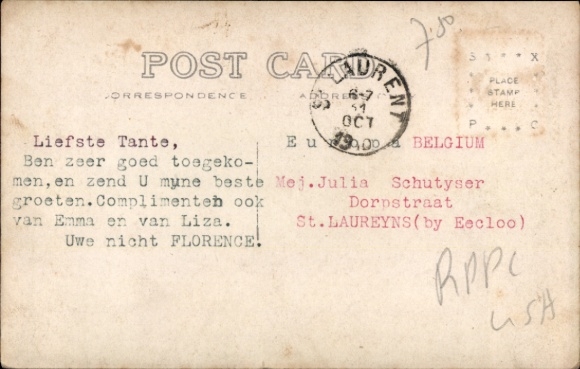 7.50
POST CARD
CORRESPONDENCE
ADDRESS
PLACE
STAMP
HERE
ST LAURENT
6-7
11
OCT
Liefste Tante,
Ben zeer goed toegeko-
men,en zend U myne beste
groeten.Complimenten ook
van Emma en van Liza.
Uwe nicht FLORENCE.
BELGIUM
Mej.Julia Schutyser
Dorpstraat
St.LAUREYNS(by Eecloo)
RPPC
USA